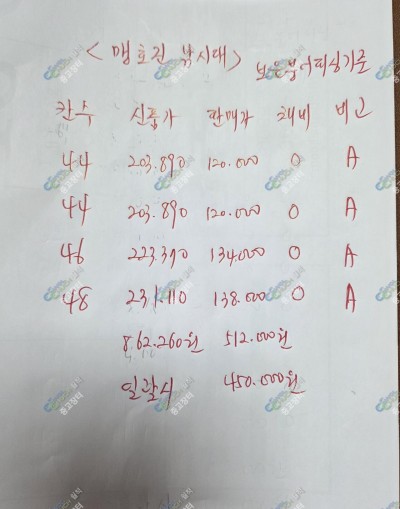 <맹호진 낚시대> 보은붕어피싱기준
칸수 신품가 판매가 채비 비고
44 203.890 120.000 0 A
44 203.890 120.000 0 A
46 223.370 134.000 0 A
48 231.110 138.000 0 A
862.260원 512.000원
일괄시 450.000원